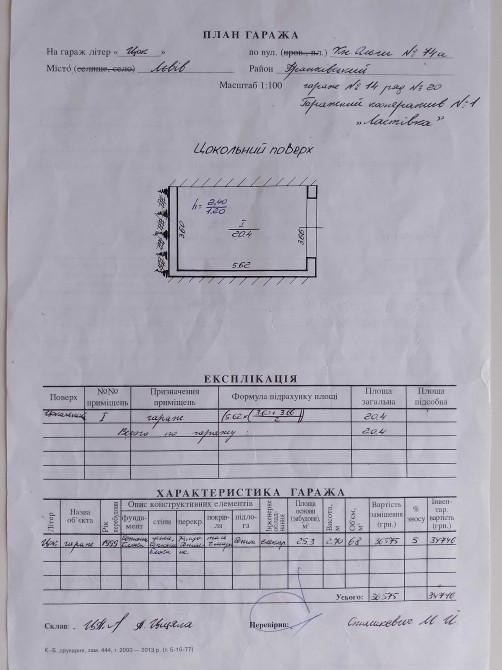 ПЛАН ГАРАЖА
На гараж літер " Цок " по вул. (пров., пл.) Кн. Ольги № 74а
Місто (селище, село) Львів Район Франківський
Масштаб 1:100 гараж № 14 ряд № 20
Гаражний кооператив № 1
"Ластівка"
Цокольний поверх
h= 2.40
1.20
3.60
I
20.4
3.66
5.62
ЕКСПЛІКАЦІЯ
Поверх №№ приміщень Призначення приміщень Формула підрахунку площі Площа загальна Площа підсобна
Цокольний I гараж (5.62×(3.60+3.66)/2) 20.4
Всього по гаражу: 20.4
ХАРАКТЕРИСТИКА ГАРАЖА
Літер Назва об'єкта Рік Опис конструктивних елементів Площа основи (забудови), м² Висота, м Об'єм, м³ Вартість заміщення (грн.) % зносу Інвентар. вартість (грн.)
фундамент стіни перекр. покрівля підлога
Цок гараж 1999 25.3 2.70 68 36575 5 34746
Усього: 36575 34746
Склав:
Перевірив:
К.-Б. друкарня, зам. 444, т. 2000 — 2013 р. (т. 5-16-77)